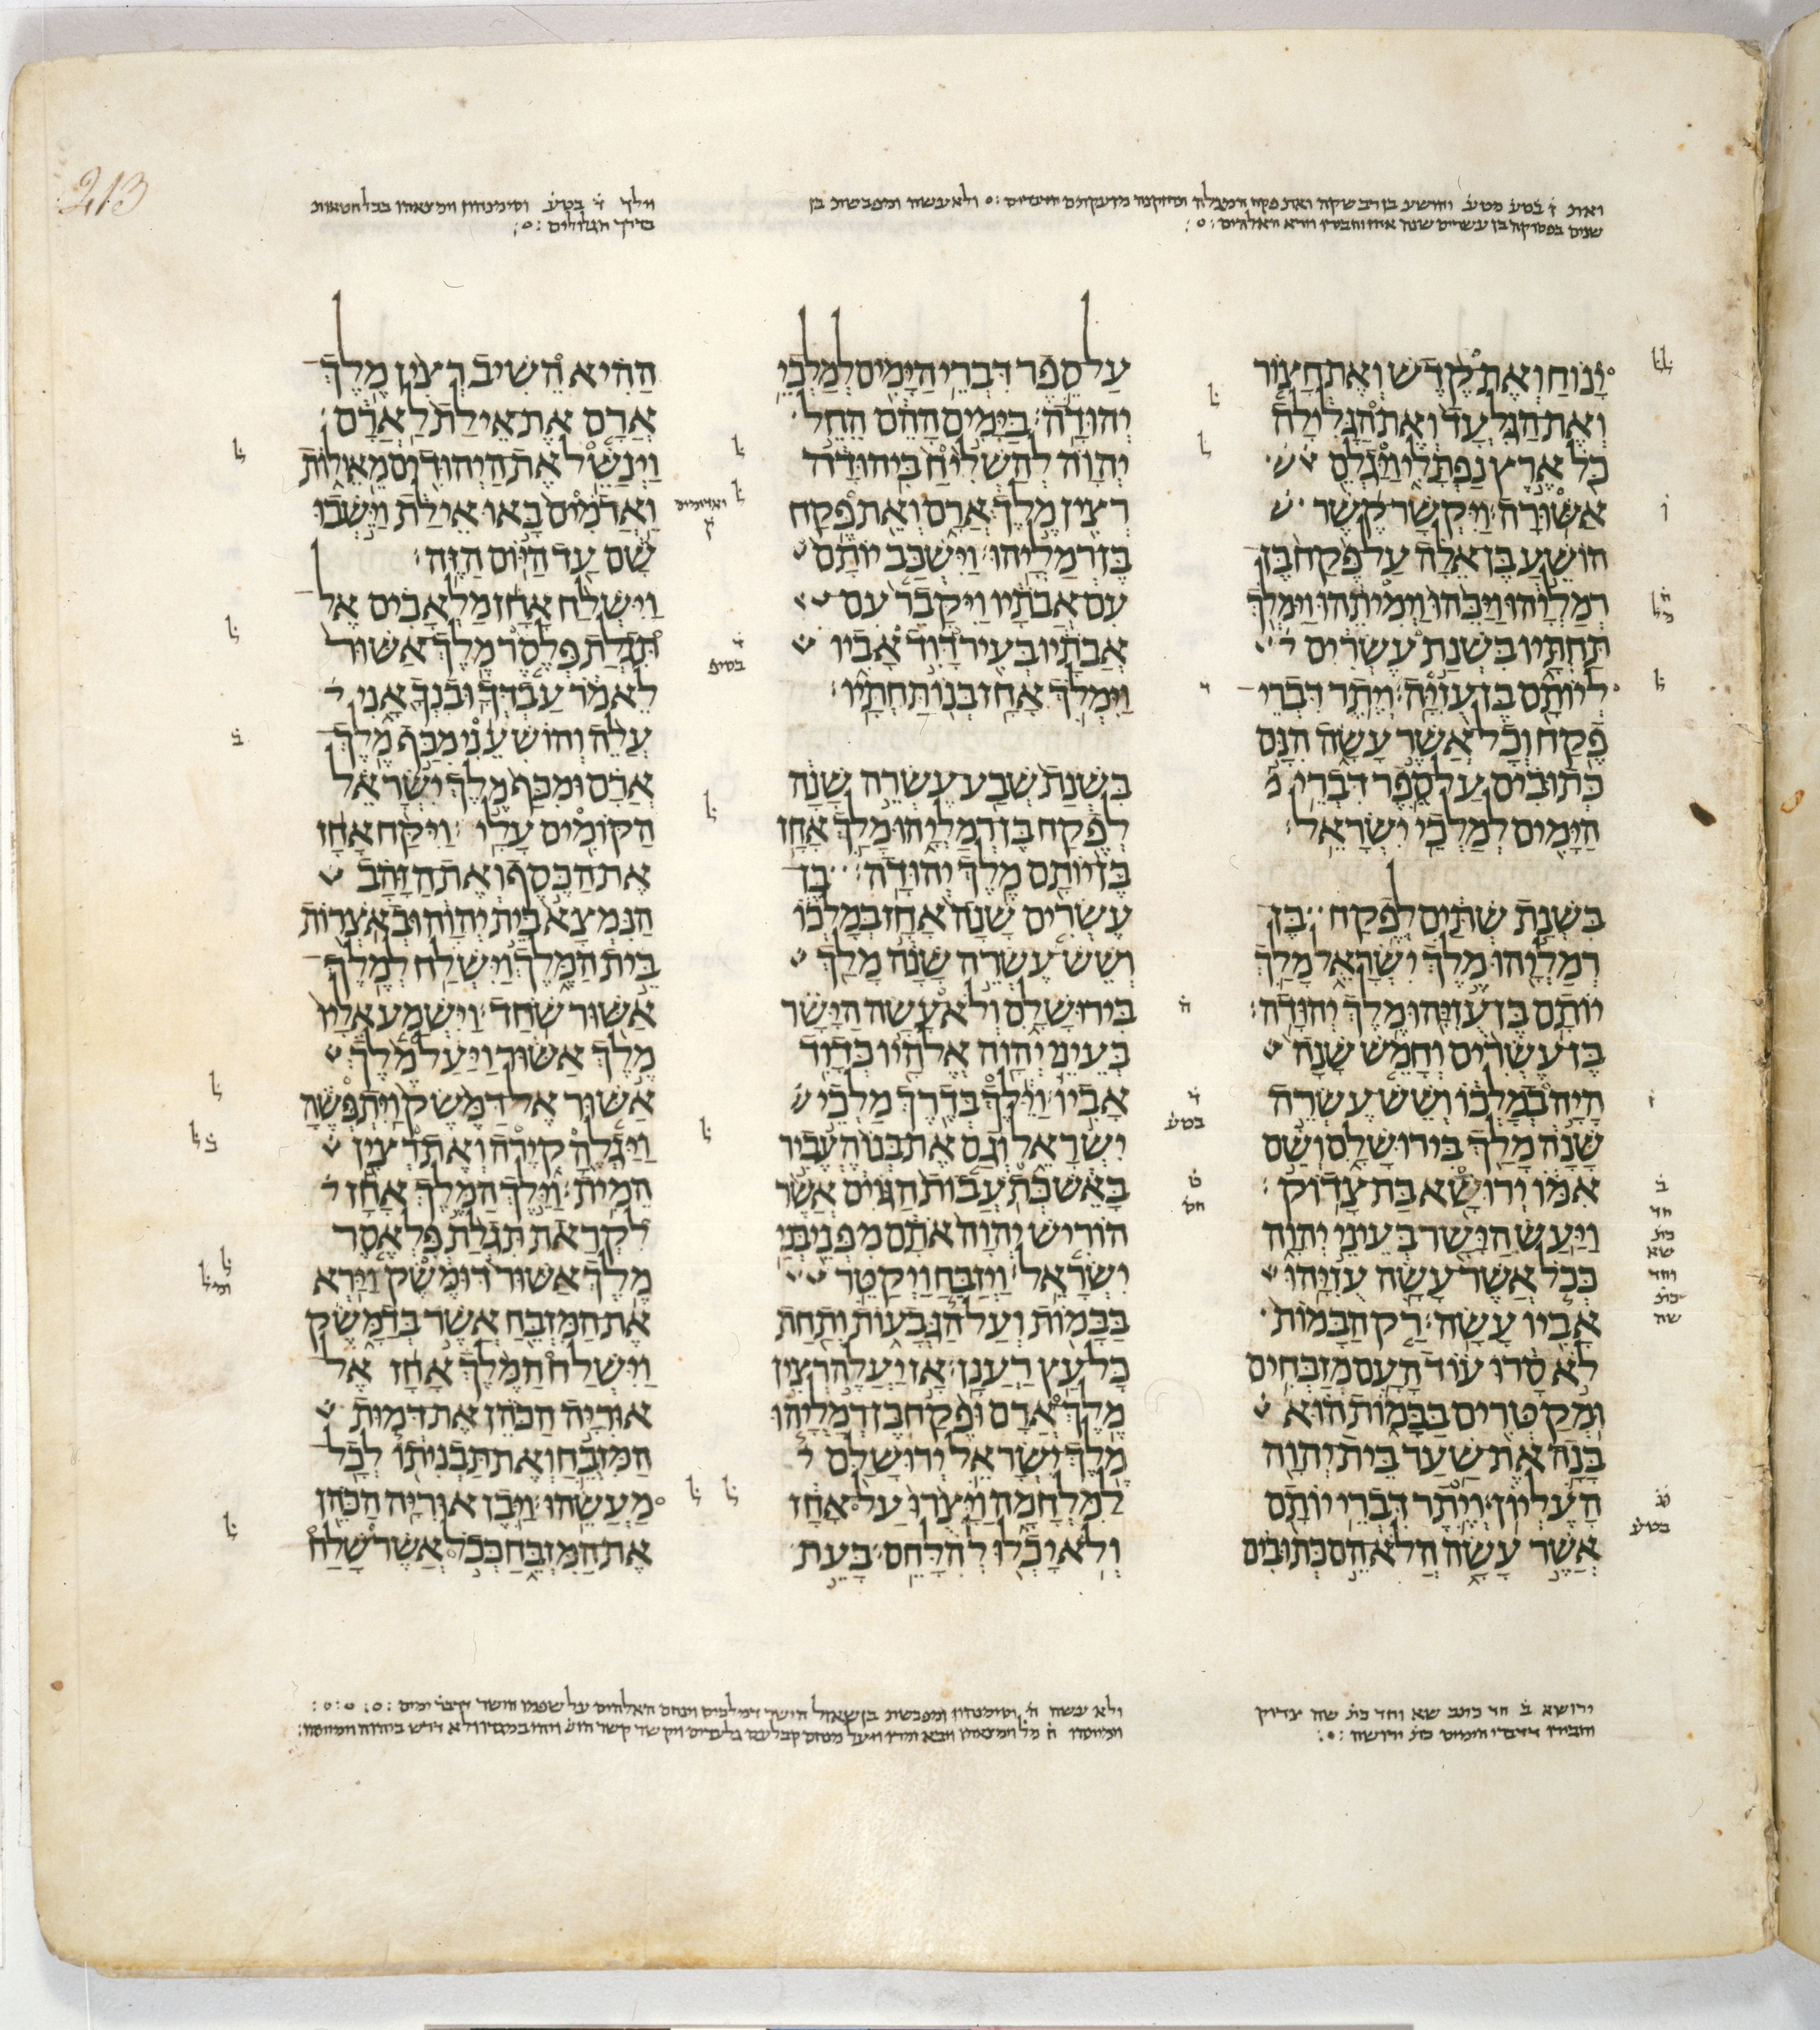 213
וילך ד בטע וסימנהון
בדרך
ינוח ואת קדש ואת חצור
ואת הגלעד ואת הגלילה
כל ארץ נפתלי ויגלם
אשורה ויקשר קשר
הושע בן אלה על פקח בן
רמליהו ויכהו וימיתהו וימלך
תחתיו בשנת עשרים
ליותם בן עזיה ויתר דברי
פקח וכל אשר עשה הנם
כתובים על ספר דברי
הימים למלכי ישראל
בשנת שתים לפקח בן
רמליהו מלך ישראל מלך
יותם בן עזיהו מלך יהודה
בן עשרים וחמש שנה
היה במלכו ושש עשרה
שנה מלך בירושלם ושם
אמו ירושא בת צדוק
ויעש הישר בעיני יהוה
ככל אשר עשה עזיהו
אביו עשה רק הבמות
לא סרו עוד העם מזבחים
ומקטרים בבמות הוא
בנה את שער בית יהוה
העליון ויתר דברי יותם
אשר עשה הלא הם כתובים
על ספר דברי הימים למלכי
יהודה בימים ההם החל
יהוה להשליח ביהודה
רצין מלך ארם ואת פקח
בן רמליהו וישכב יותם
עם אבתיו ויקבר עם
אבתיו בעיר דוד אביו
וימלך אחז בנו תחתיו
בשנת שבע עשרה שנה
לפקח בן רמליהו מלך אחז
בן יותם מלך יהודה בן
עשרים שנה אחז במלכו
ושש עשרה שנה מלך
בירושלם ולא עשה הישר
בעיני יהוה אלהיו כדוד
אביו וילך בדרך מלכי
ישראל וגם את בנו העביר
באש כתעבות הגוים אשר
הוריש יהוה אתם מפני בני
ישראל ויזבח ויקטר
בבמות ועל הגבעות ותחת
כל עץ רענן אז יעלה רצין
מלך ארם ופקח בן רמליהו
מלך ישראל ירושלם
למלחמה ויצרו על אחז
ולא יכלו להלחם בעת
ההיא השיב רצין מלך
ארם את אילת לארם
וינשל את היהודים מאילות
וארמים באו אילת וישבו
שם עד היום הזה
וישלח אחז מלאכים אל
תגלת פלסר מלך אשור
לאמר עבדך ובנך אני
עלה והושעני מכף מלך
ארם ומכף מלך ישראל
הקומים עלי ויקח אחז
את הכסף ואת הזהב
הנמצא בית יהוה ובאצרות
בית המלך וישלח למלך
אשור שחד וישמע אליו
מלך אשור ויעל מלך
אשור אל דמשק ויתפשה
ויגלה קירה ואת רצין
המית וילך המלך אחז
לקראת תגלת פלאסר
מלך אשור דומשק וירא
את המזבח אשר בדמשק
וישלח המלך אחז אל
אוריה הכהן את דמות
המזבח ואת תבניתו לכל
מעשהו ויבן אוריה הכהן
את המזבח ככל אשר שלח
ירושא ב חד כתב שא וחד כת שה צדוק
ולא עשה ה וסימנהון ומפבשת בן שאול